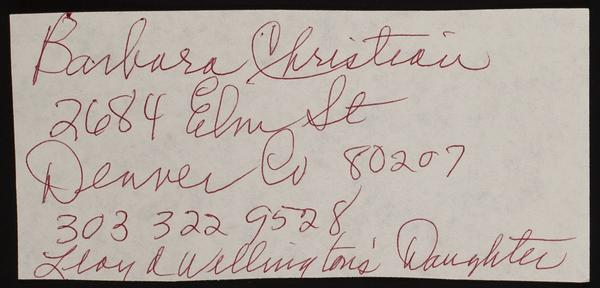 Barbara Christian
2684 Elm St
Denver Co 80207
303 322 9528
Lloyd Wellington's Daughter